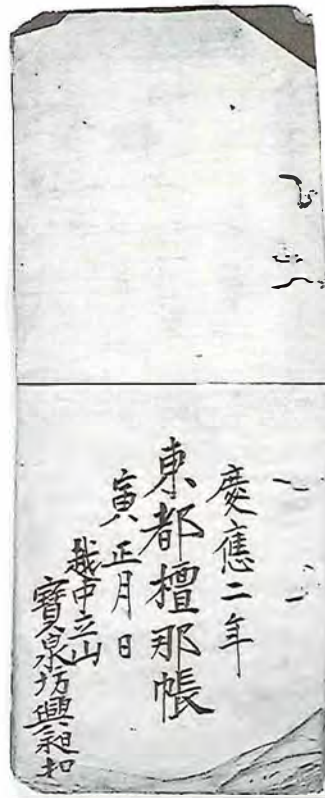 慶應二年
東都檀那帳
寅正月日
越中立山
寶泉坊興昶扣